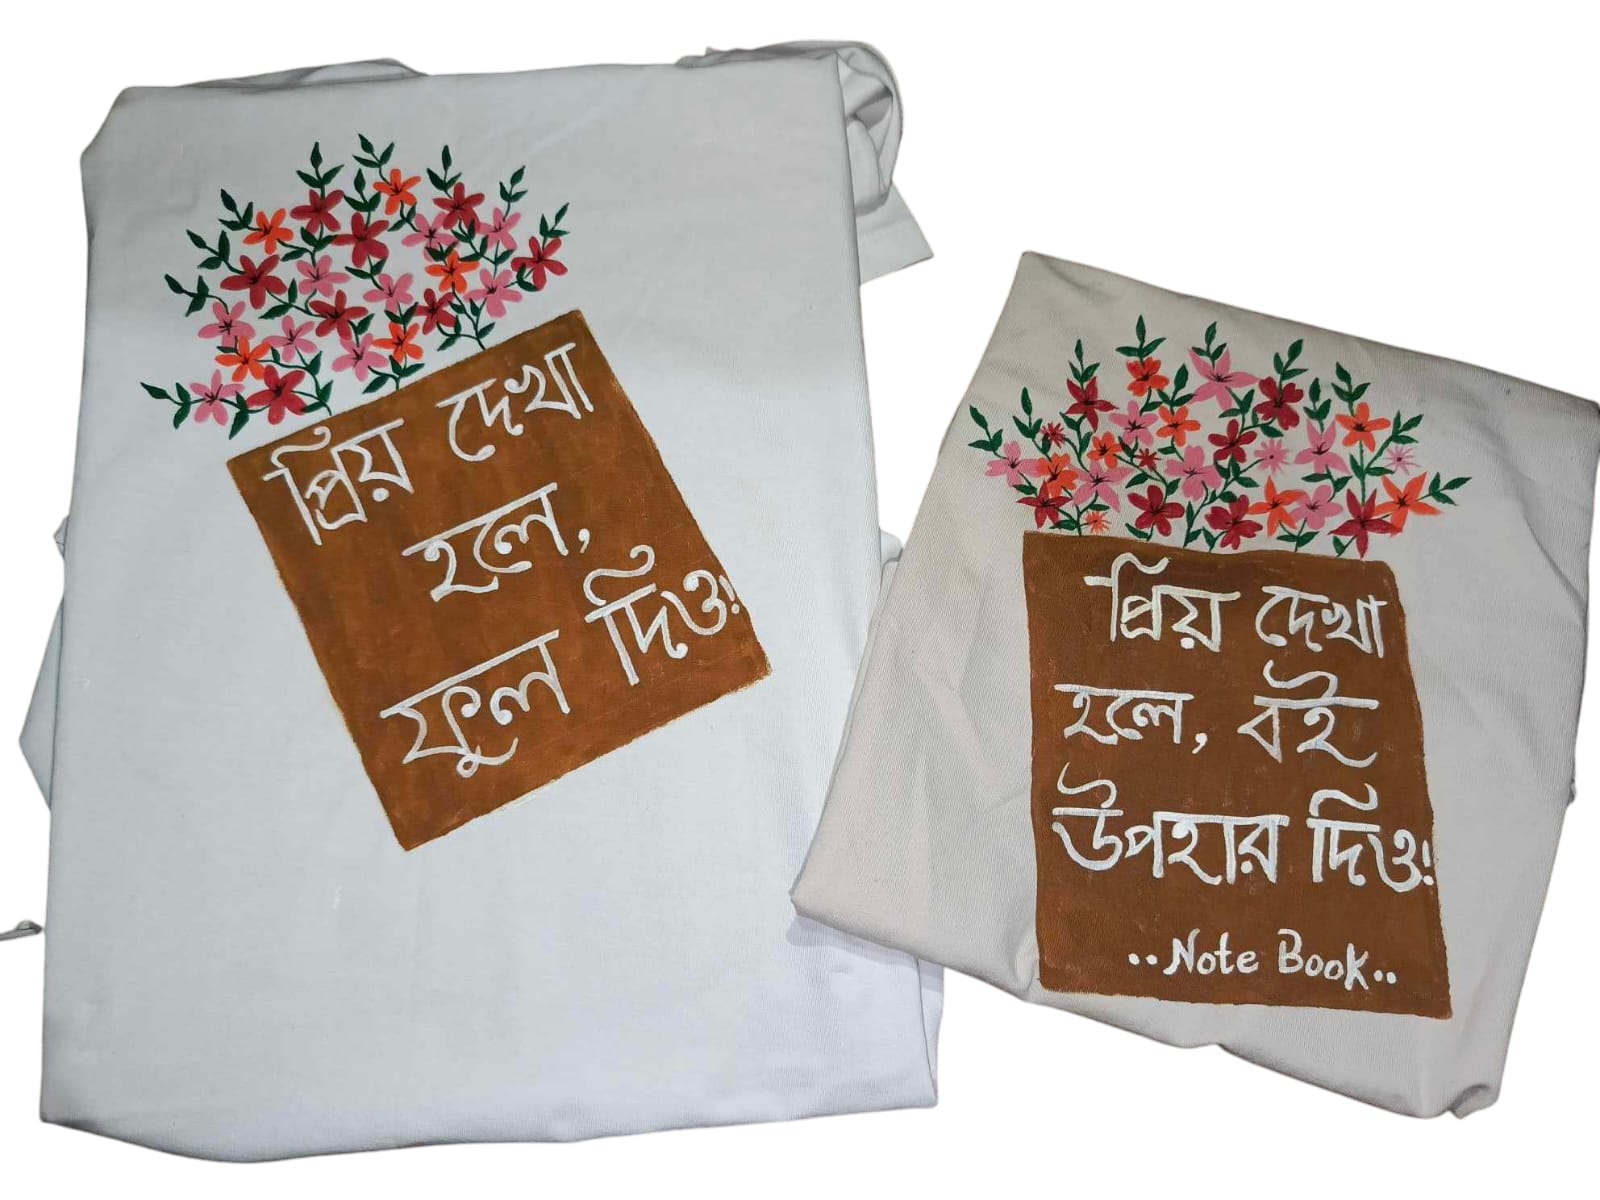 প্রিয় দেখা
হলে,
ফুল দিও!
প্রিয় দেখা
হলে, বই
উপহার দিও!
..Note Book..